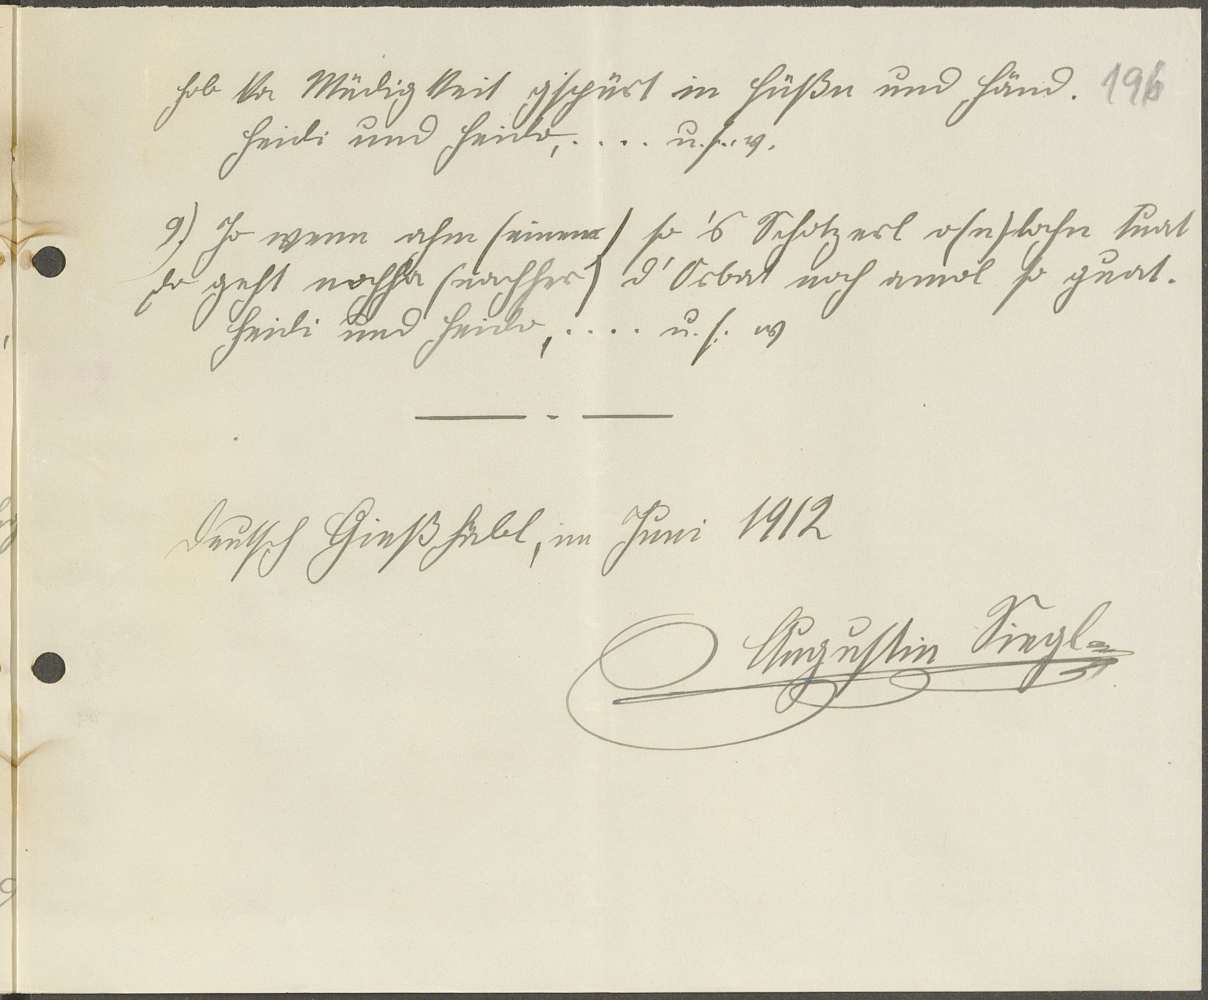 hob ka Müdigkeit g'spürt in Füßn und Händ. 196
Heidi und Heido, .... u.s.w.
9) Jo wenn ahm (einem) so 's Schotzerl o(n)lochn tuat
do geht nochha (nachher) d' Orbat noch amol so guat.
Heidi und Heido, .... u. s. w
Deutsch Gießhübl, im Juni 1912
Augustin Siegl